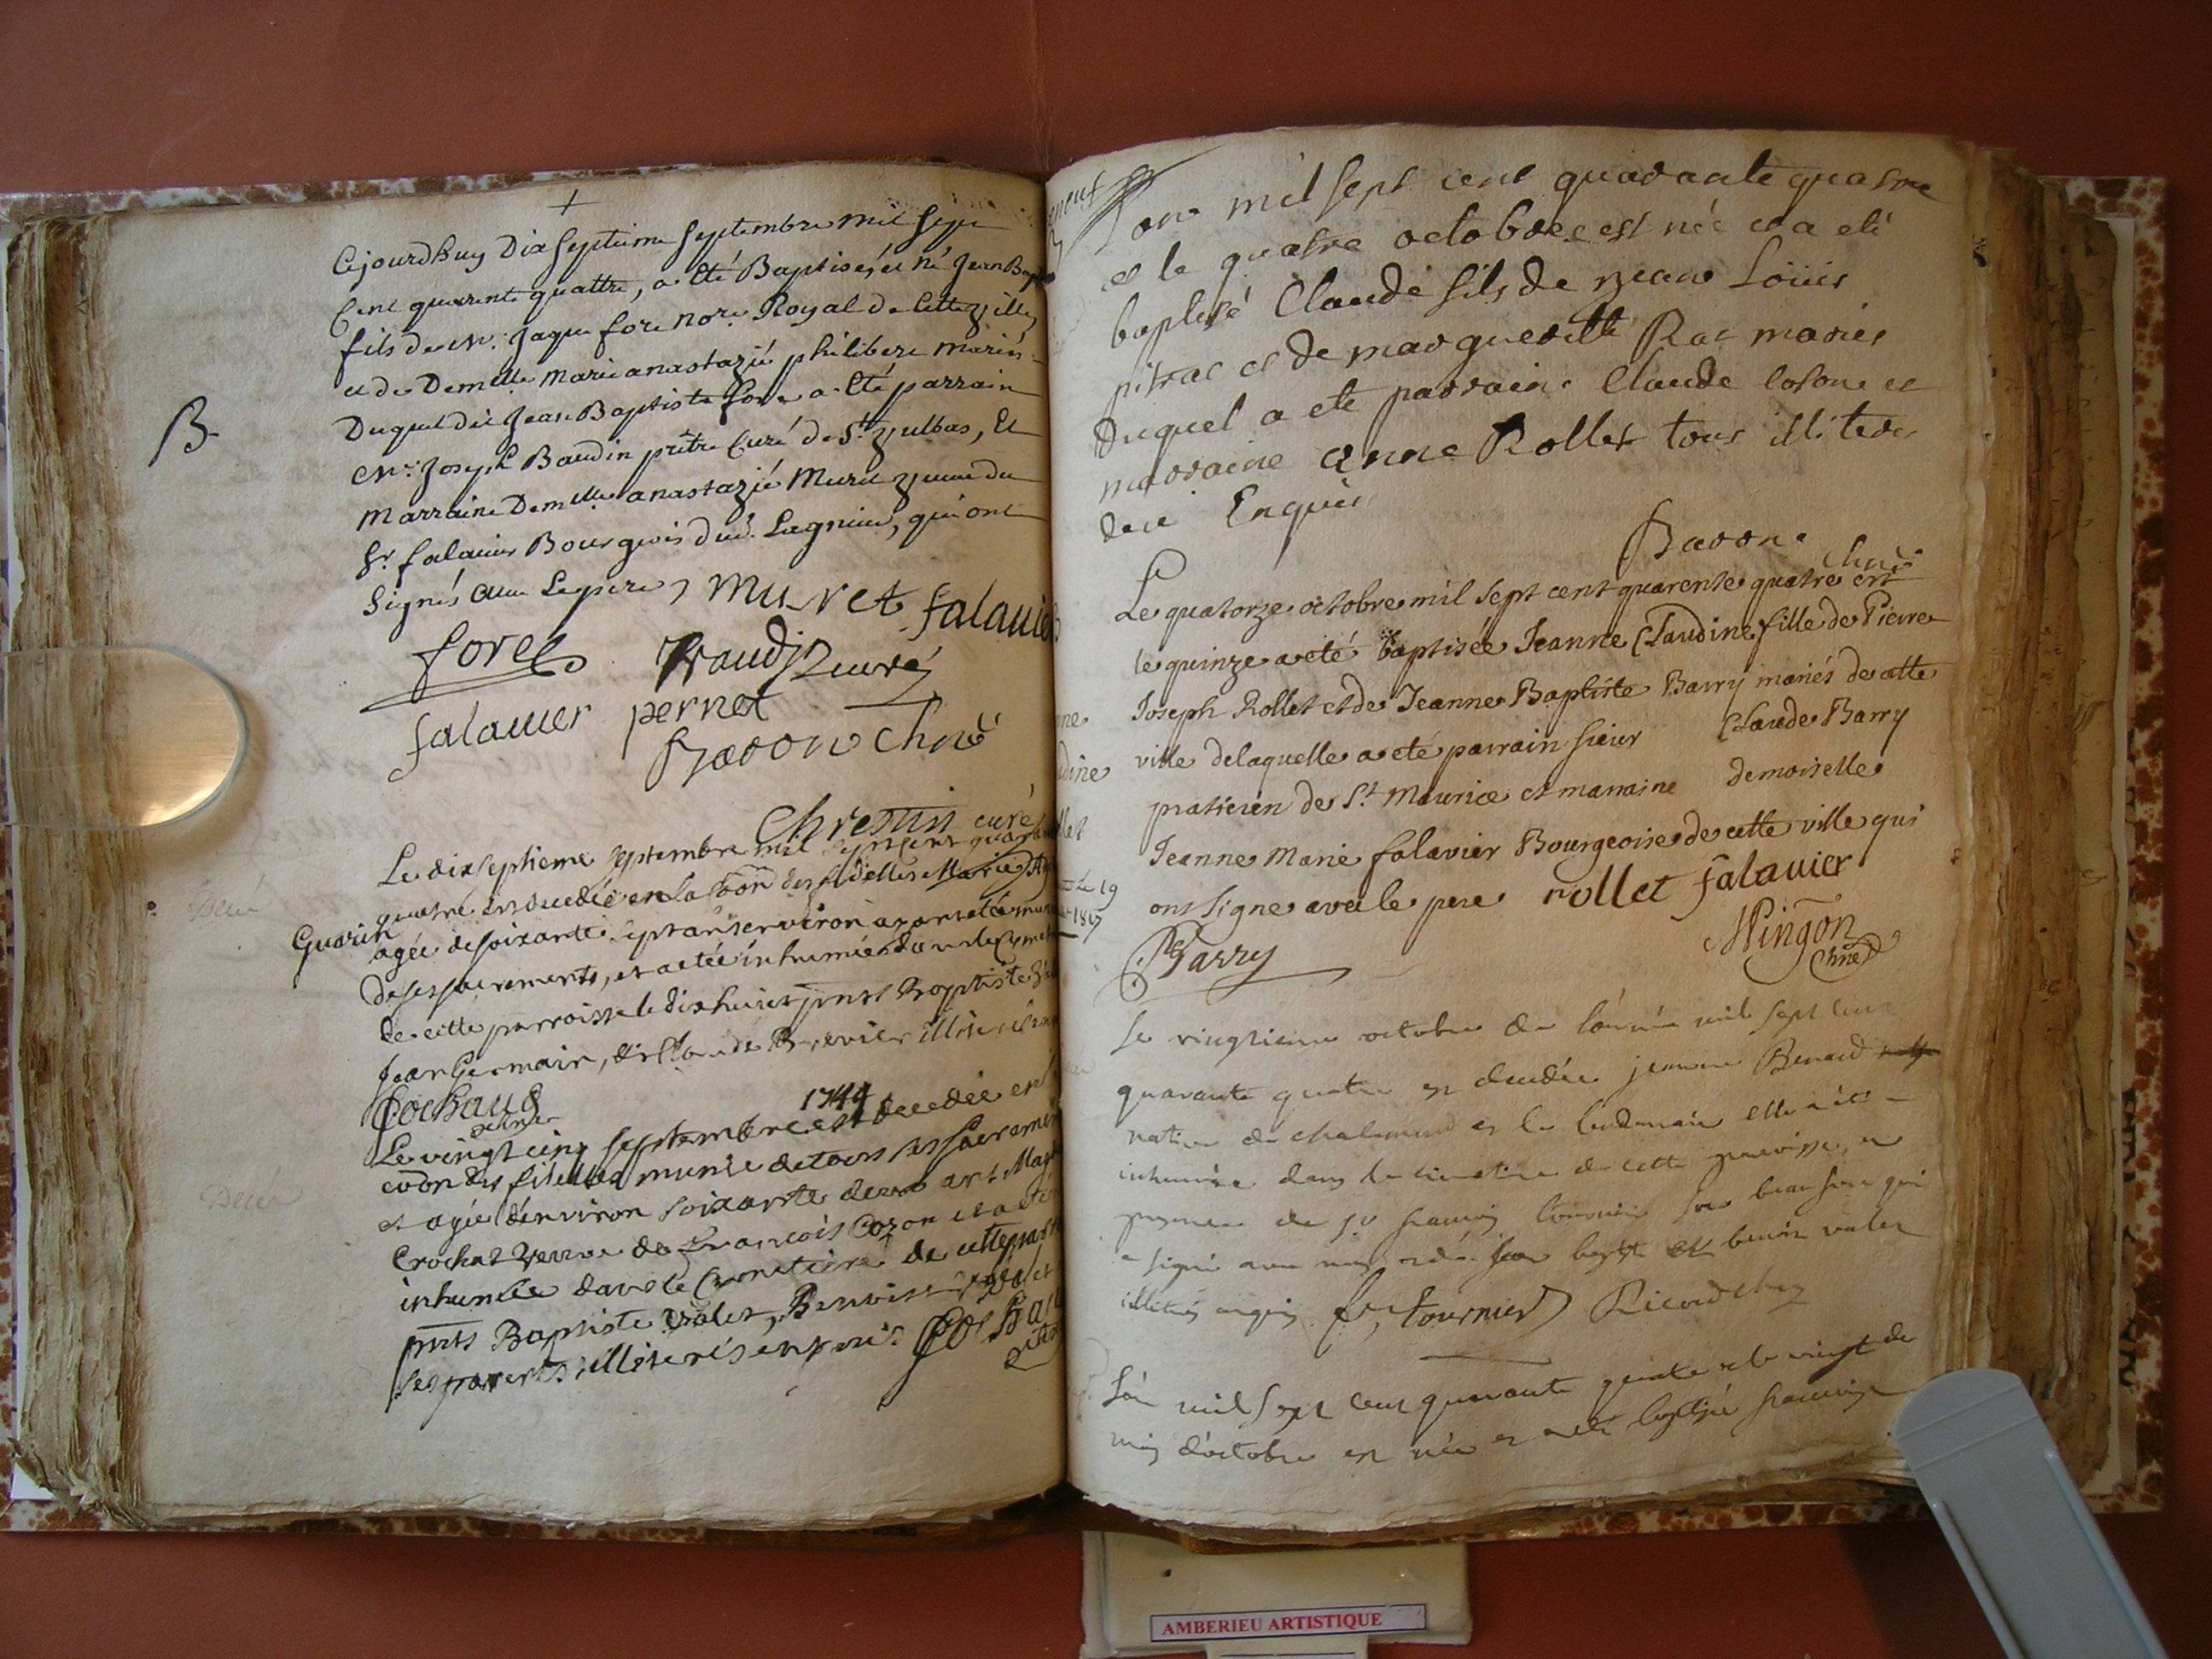 Cejourdhuy Dix septieme septembre mil sept
Cent quarente quattre, a été Baptisé, et né Jean Bap
fils de Mr. Jaque fore nore. Royal de Cette ville
et de Demelle Marie anastazie philibere mariés
Duquel dit Jean Baptiste fore a été parrain
Mr. Joseph Baudin prêtre Curé de St. Vulbas, Et
Marraine Demlle. anastazie Muret veuve du
Sr. falavier Bourgeois dud. Lagnieu, qui ont
Signés avec Le pere,
B.
Muret falavier
forel Baudin curé
falavier pernet
Baron Chne
Chrestin curé
Le dixseptieme septembre mil sept cent quarante
quatre est decedée en la coon des fidelles Marie
Guarin
agée de soixante sept ans environ ayant été munie
de ses sacrements, et a eté inhumée dans le Cymet
de cette parroisse le dixhuict pnts Baptiste
Jean Germain, et Claude Brevier illiterés
Cochaud
1744
Le vingt cinq septembre est decedée en la
coon des fidelles munie de tous ses sacremens
et agée d'environ soixante deux ans
Crochat veuve de François Cozon et a eté
inhumée dans le Cymetiere de cette parr
pnts Baptiste valet, Benoist valet
ses parents illiterés enquis. Cochaud
Deces
L'an mil sept cent quarante quatre
et le quatre octobre est né et a eté
baptisé Claude fils de Jean Loüis
pitrat et de marguerite Rat mariés
Duquel a eté parrain Claude et
marraine anne Rollet tous illiterés
de ce Enquis
Baron
Chne
Le quatorze octobre mil sept cent quarente quatre est née
le quinze a eté baptisée Jeanne Claudine fille de Pierre
Joseph Rollet et de Jeanne Baptiste Barry mariés de cette
ville de laquelle a eté parrain sieur Claude Barry
praticien de St. Maurice et marraine demoiselle
Jeanne Marie falavier Bourgeoise de cette ville qui
ont signe avec le pere rollet falavier
Barry
Mingon
Chne
Le vingtieme octobre de l'année mil sept cent
quarante quatre est decedée jeanne Benard
native de chalamont et le lendemain elle a été
inhumée dans le cimetiere de cette paroisse, en
presence de Sr françois tournier son beau frere qui
a signé avec moy et de Jean bapte et benoit valet
illiterés enquis fr. tournier Ricard
L'an mil sept cent quarante quatre et le vingt de
mois d'octobre est née et a eté baptisée françoise
19
1817
AMBERIEU ARTISTIQUE